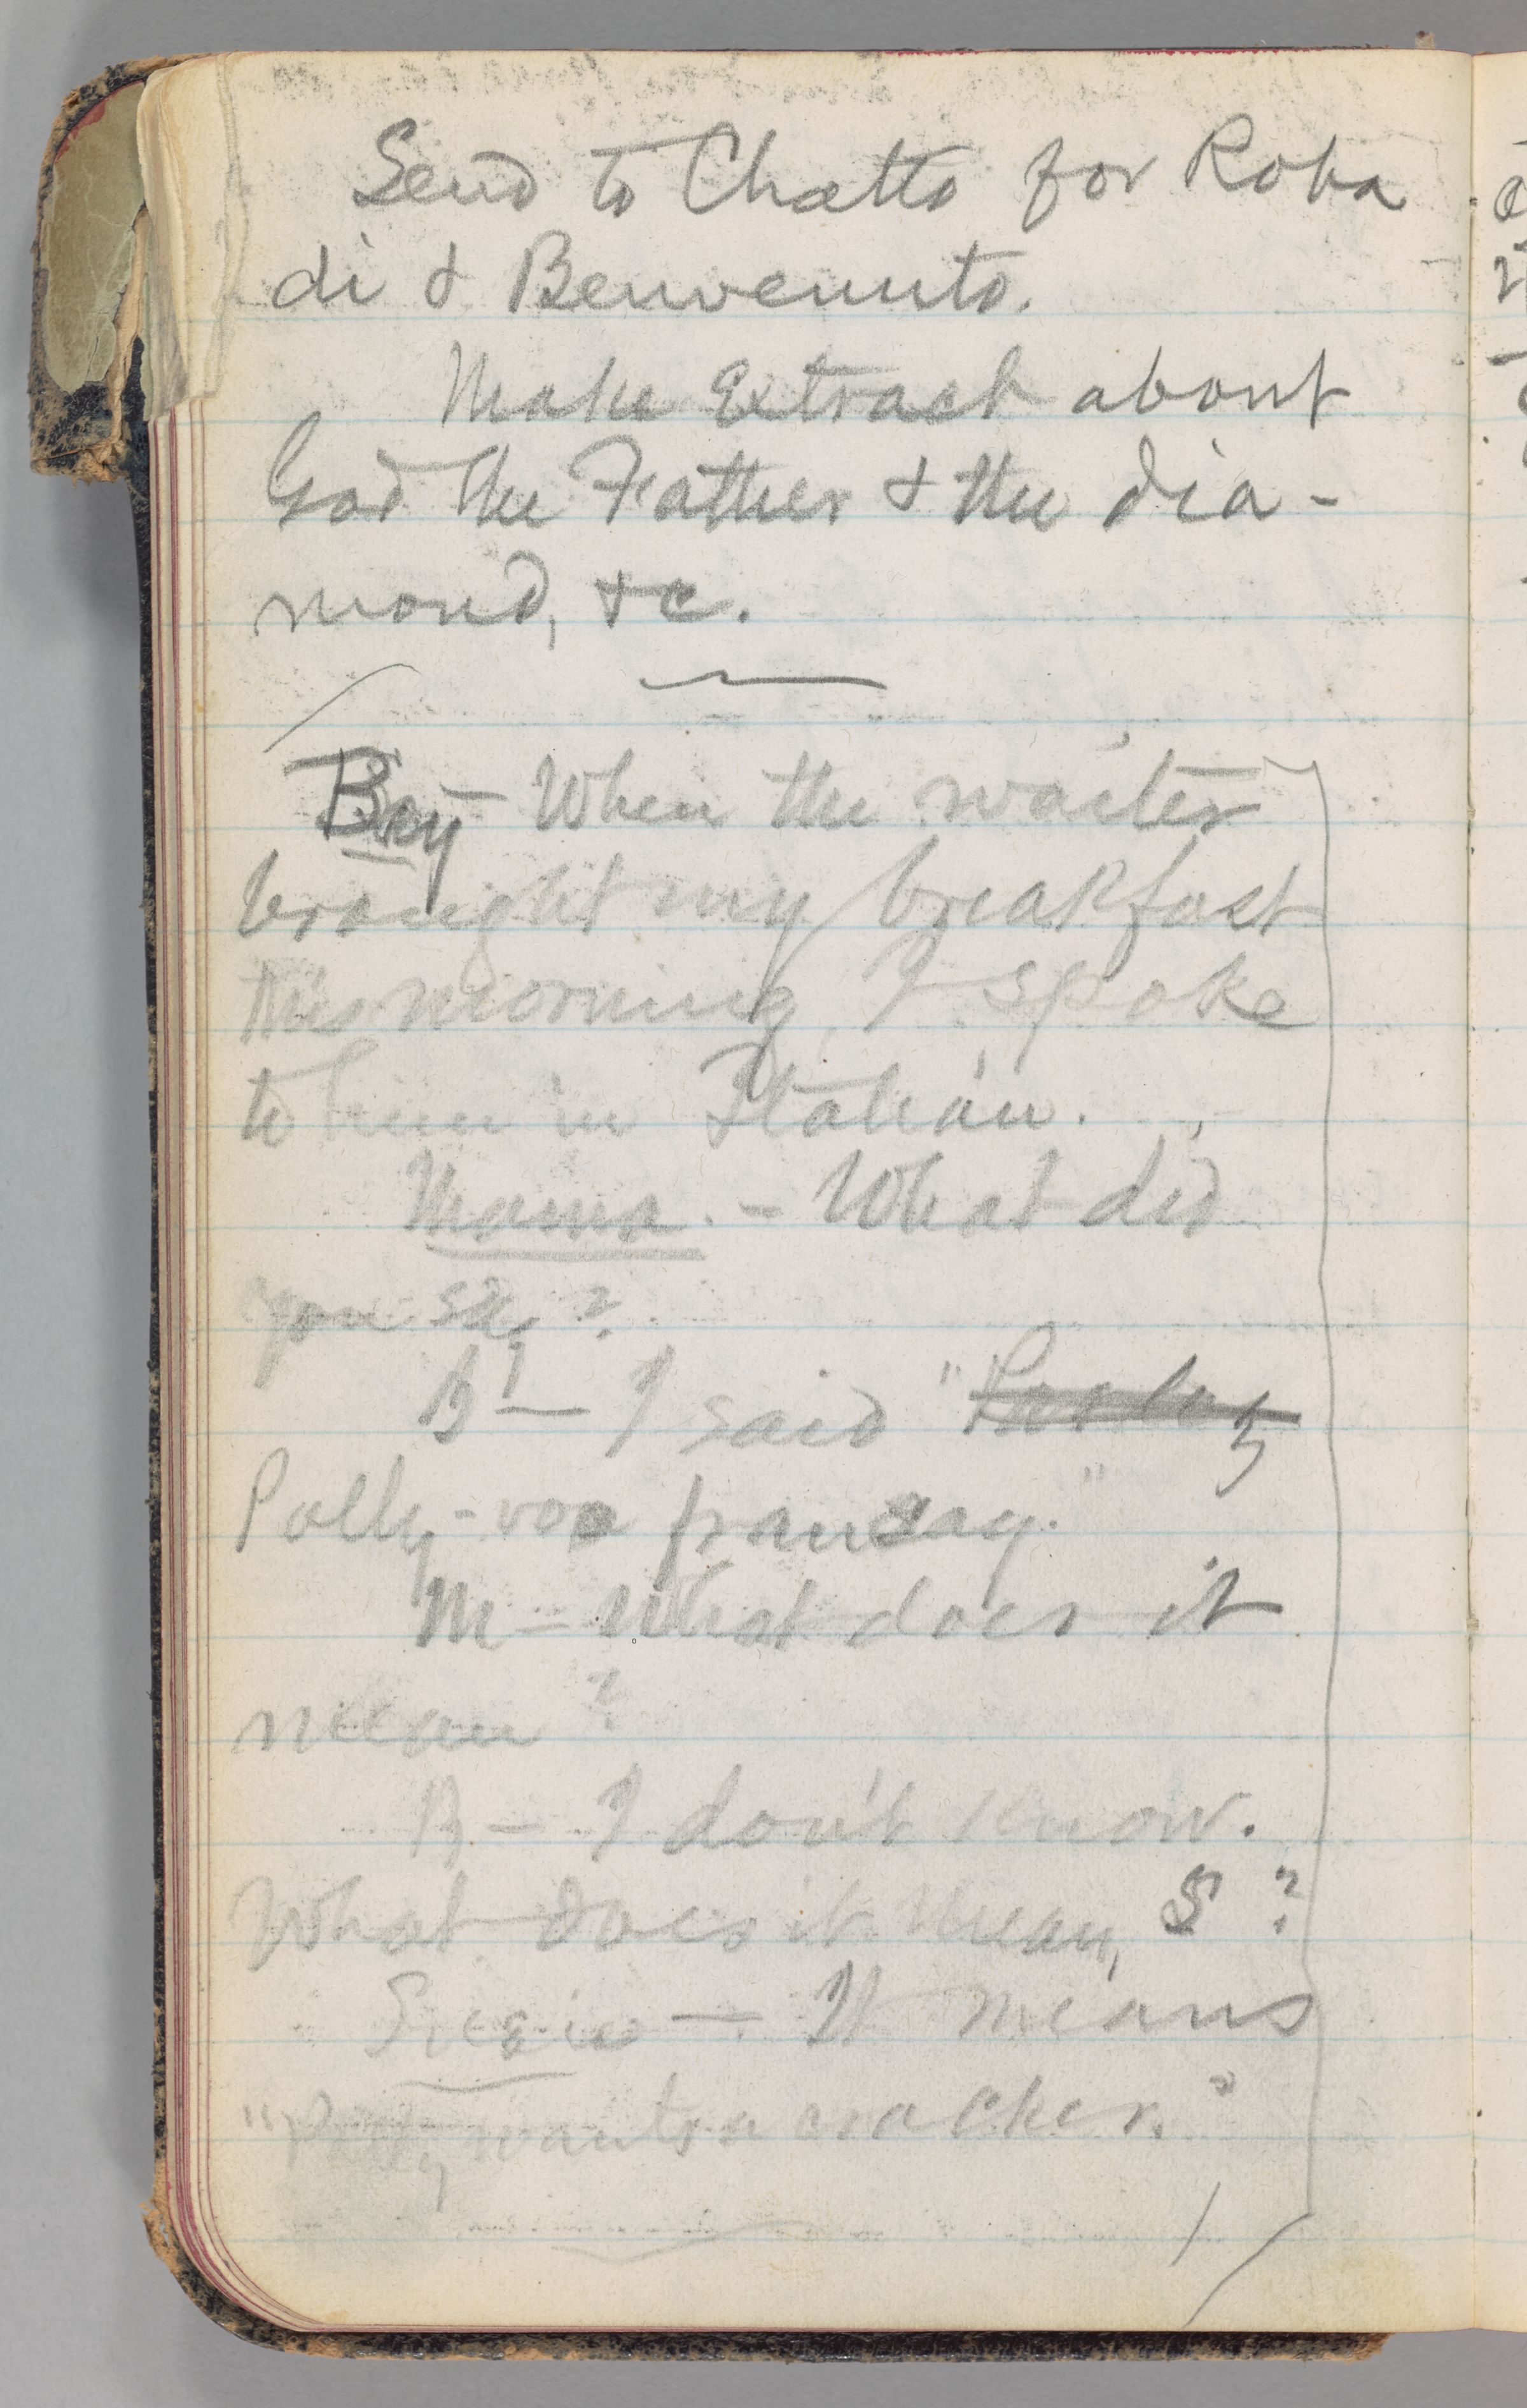 Send to Chatto for Roba
di & Benvenuto.
Make Extract about
God the Father & the dia-
mond, &c.
Bay – When the waiter
brought my breakfast
this morning, I spoke
to him in Italian.
Mama. – What did
you say?
B – I said "
Polly-voo fransay."
M – What does it
mean?
B – I don't know.
What does it mean, S?
Susie – It means
"Polly wants a cracker."